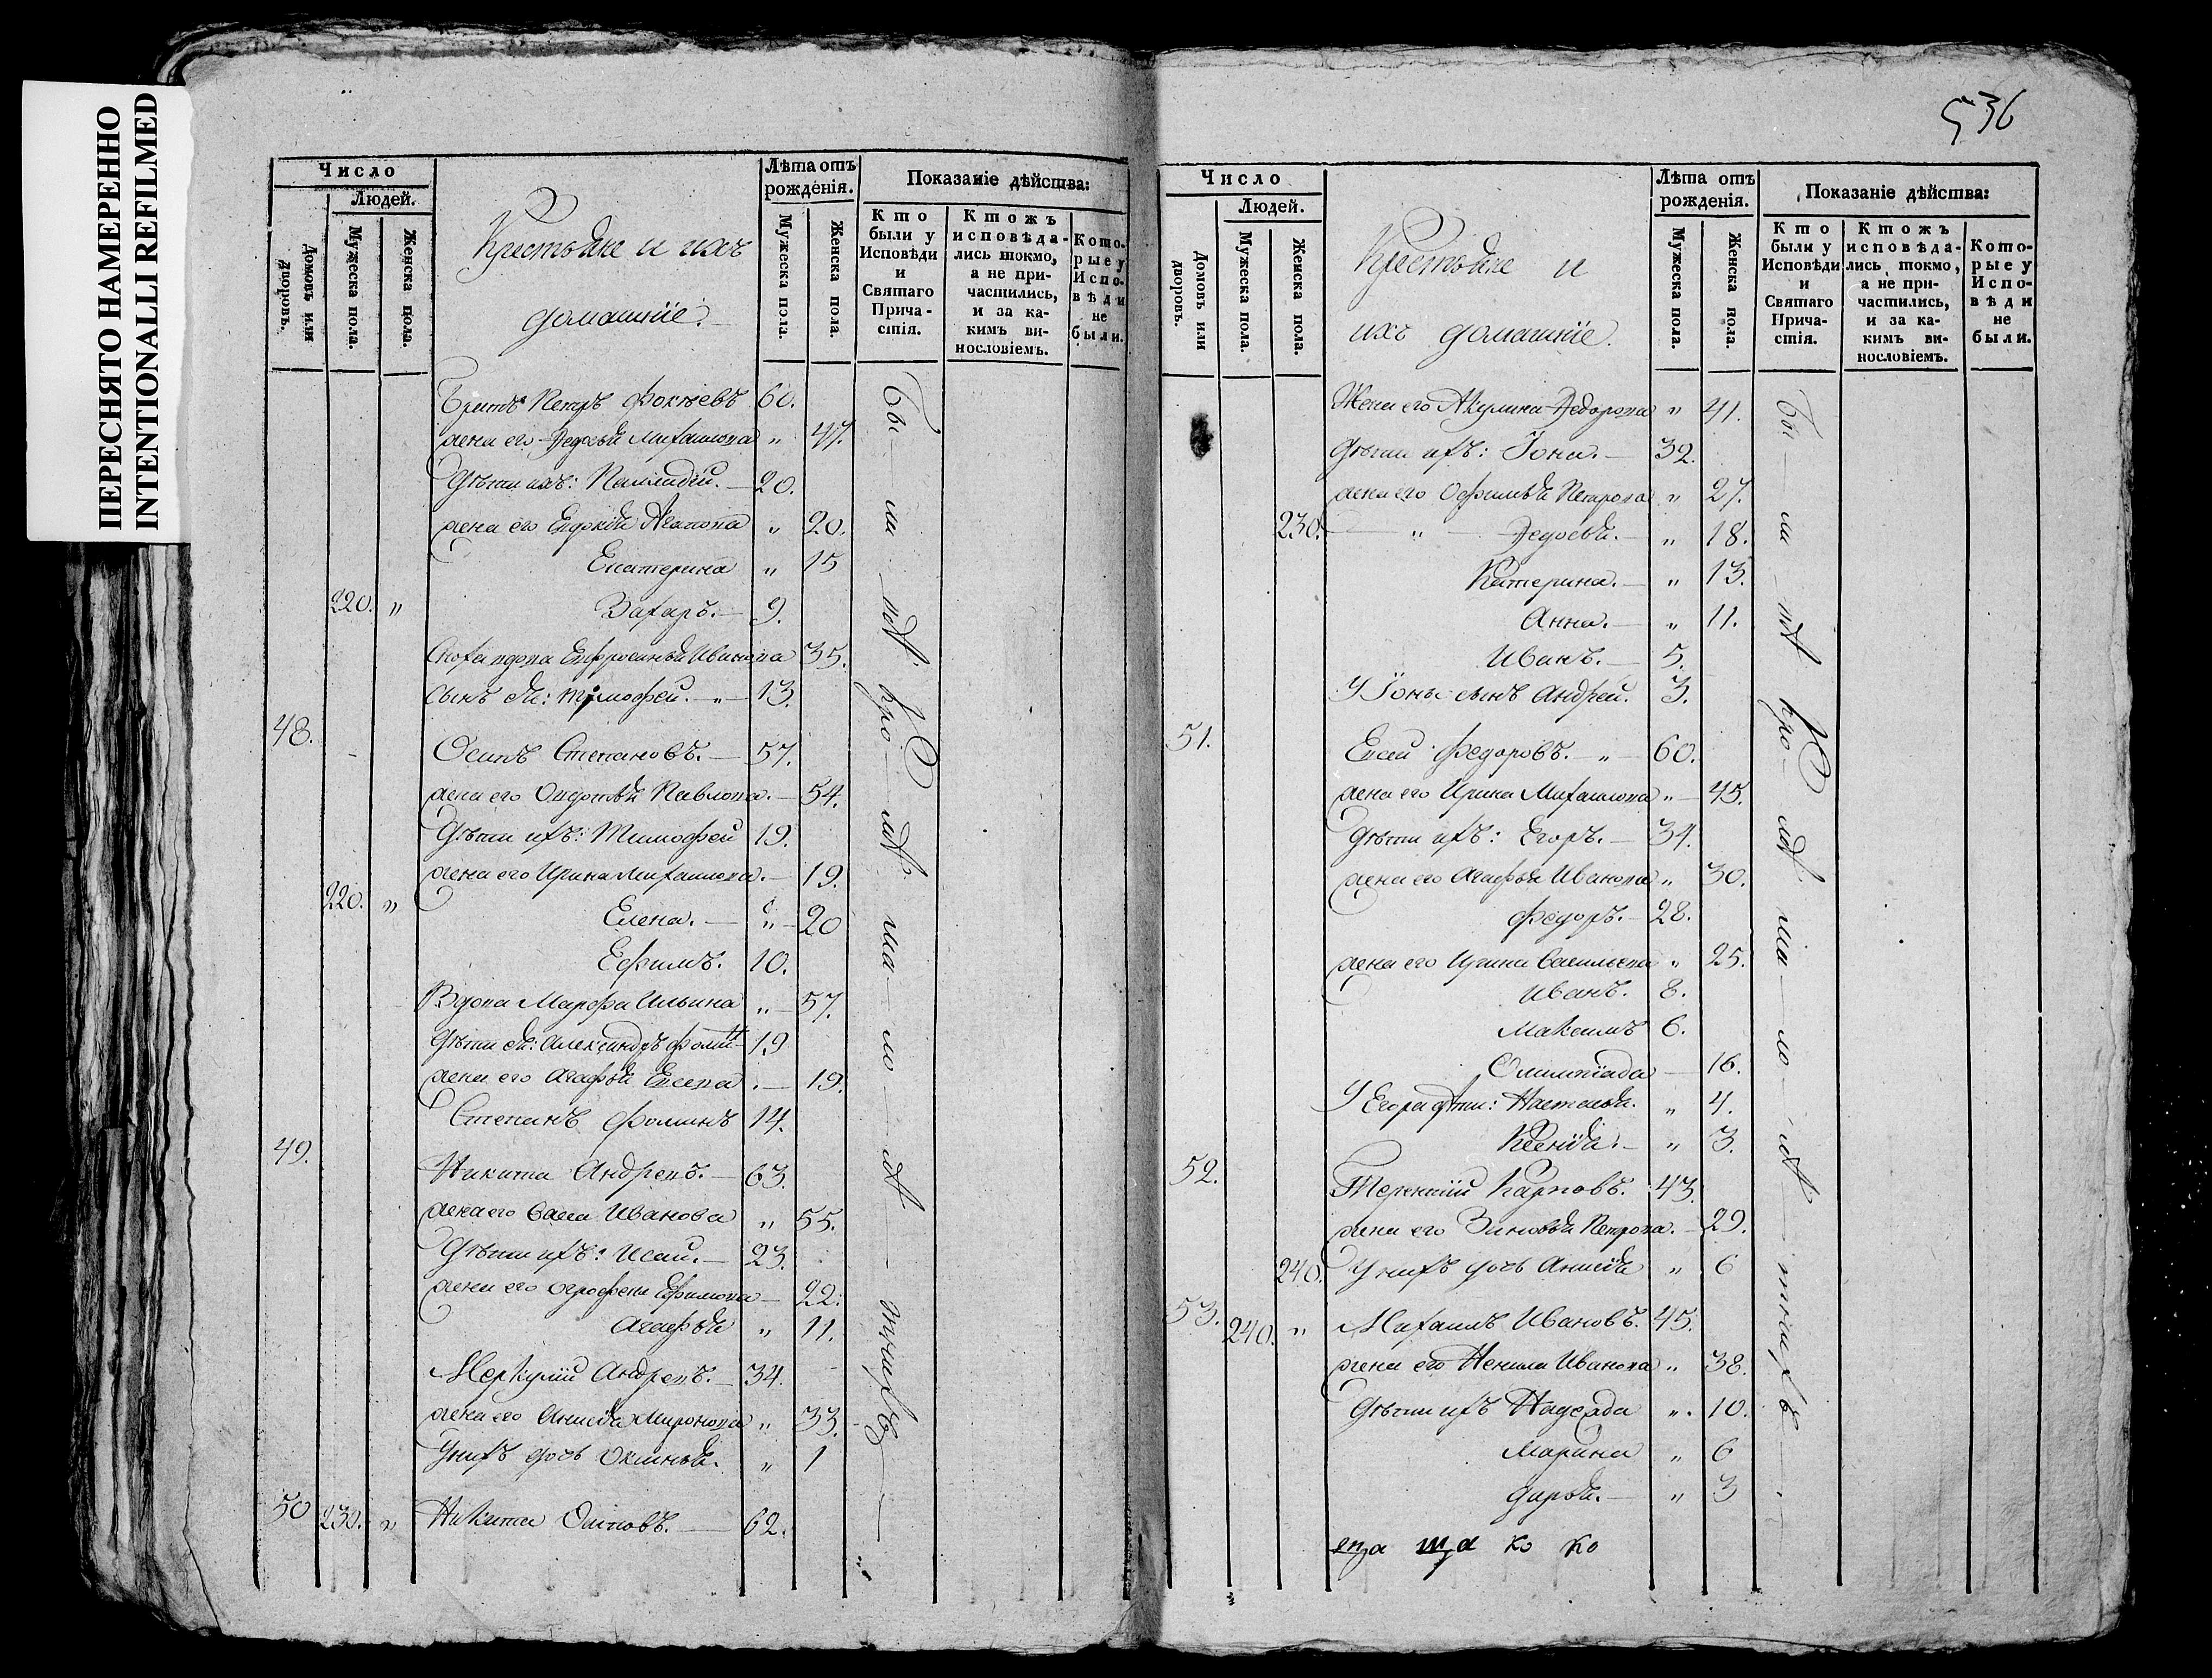 ПЕРЕСНЯТО НАМЕРЕННО
INTENTIONALLI REFILMED
536
Число
Людей.
Домовъ или дворовъ.
Мужеска пола.
Женска пола.
Крестьяне и ихъ
домашніе.
Лѣта отъ рожденія.
Мужеска пола.
Женска пола.
Показаніе дѣйства:
Кто были у Исповѣди и Святаго Причастія.
Ктожъ исповѣдались токмо, а не причастились, и за какимъ винословіемъ.
Которые у Исповѣди не были.
Братъ Петръ Фокѣевъ 60.
жена его Федосья Михаилова " 47.
Дѣти ихъ: Палладій. 20.
жена его Евдокія " 20.
Екатерина " 15
220. " Захаръ. 9.
Ефросинья Иванова 35.
сынъ ея: Тимофей. " 13.
48. Осипъ Степановъ. 57.
жена его Павлова. 54.
Дѣти ихъ: Тимофей 19.
жена его Ирина Михаилова. 19.
220. " Елена. " 20
Ефимъ. 10.
Вдова Марфа Ильина " 57.
Дѣти ея: Александръ 19
жена его Агафья 19.
Степанъ Фоминъ 14.
49. Никита Андревъ. 63.
жена его Васса Иванова " 55.
Дѣти ихъ: Исаи. 23.
жена его Огрофена Ефимова 22.
Агафья " 11.
Меркулій Андревъ. 34.
жена его Анисія Миронова " 33.
У нихъ дочь Оксинья. " 1
50 230. " Никита Осиповъ. 62.
Бы ли всѣ кро мѣ ма ло лѣ тнихъ
Число
Людей.
Домовъ или дворовъ.
Мужеска пола.
Женска пола.
Крестьяне и
ихъ домашніе.
Лѣта отъ рожденія.
Мужеска пола.
Женска пола.
Показаніе дѣйства:
Кто были у Исповѣди и Святаго Причастія.
Ктожъ исповѣдались токмо, а не причастились, и за какимъ винословіемъ.
Которые у Исповѣди не были.
Жена его Акулина Федорова " 41.
Дѣти ихъ: Іона. 32.
жена его Офимья Петрова " 27.
230. " Федосья. " 18.
Катерина. " 13.
Анна. " 11.
Иванъ. 5.
У Іоны сынъ Андрей. 3.
51. Федоровъ. " 60.
жена его Ирина Михаилова " 45.
Дѣти ихъ: Егоръ. 34.
жена его Агафья Иванова " 30.
Федоръ. 28.
жена его Ирина Васильева " 25.
Иванъ. 8.
Максимъ 6.
Олимпіада 16.
У Егора дѣти: Настасья. " 4.
Ксенія. " 3.
52. Терентій Карповъ. 43.
жена его Зиновья Петрова. 29.
240. У нихъ дочь Анисія " 6
53. 240. " Михаилъ Ивановъ. 45.
жена его Ненила Иванова " 38.
Дѣти ихъ Надежда " 10.
Марина " 6
Дарья. " 3
ща ко ко
Бы ли всѣ кро мѣ ма ло лѣ тнихъ